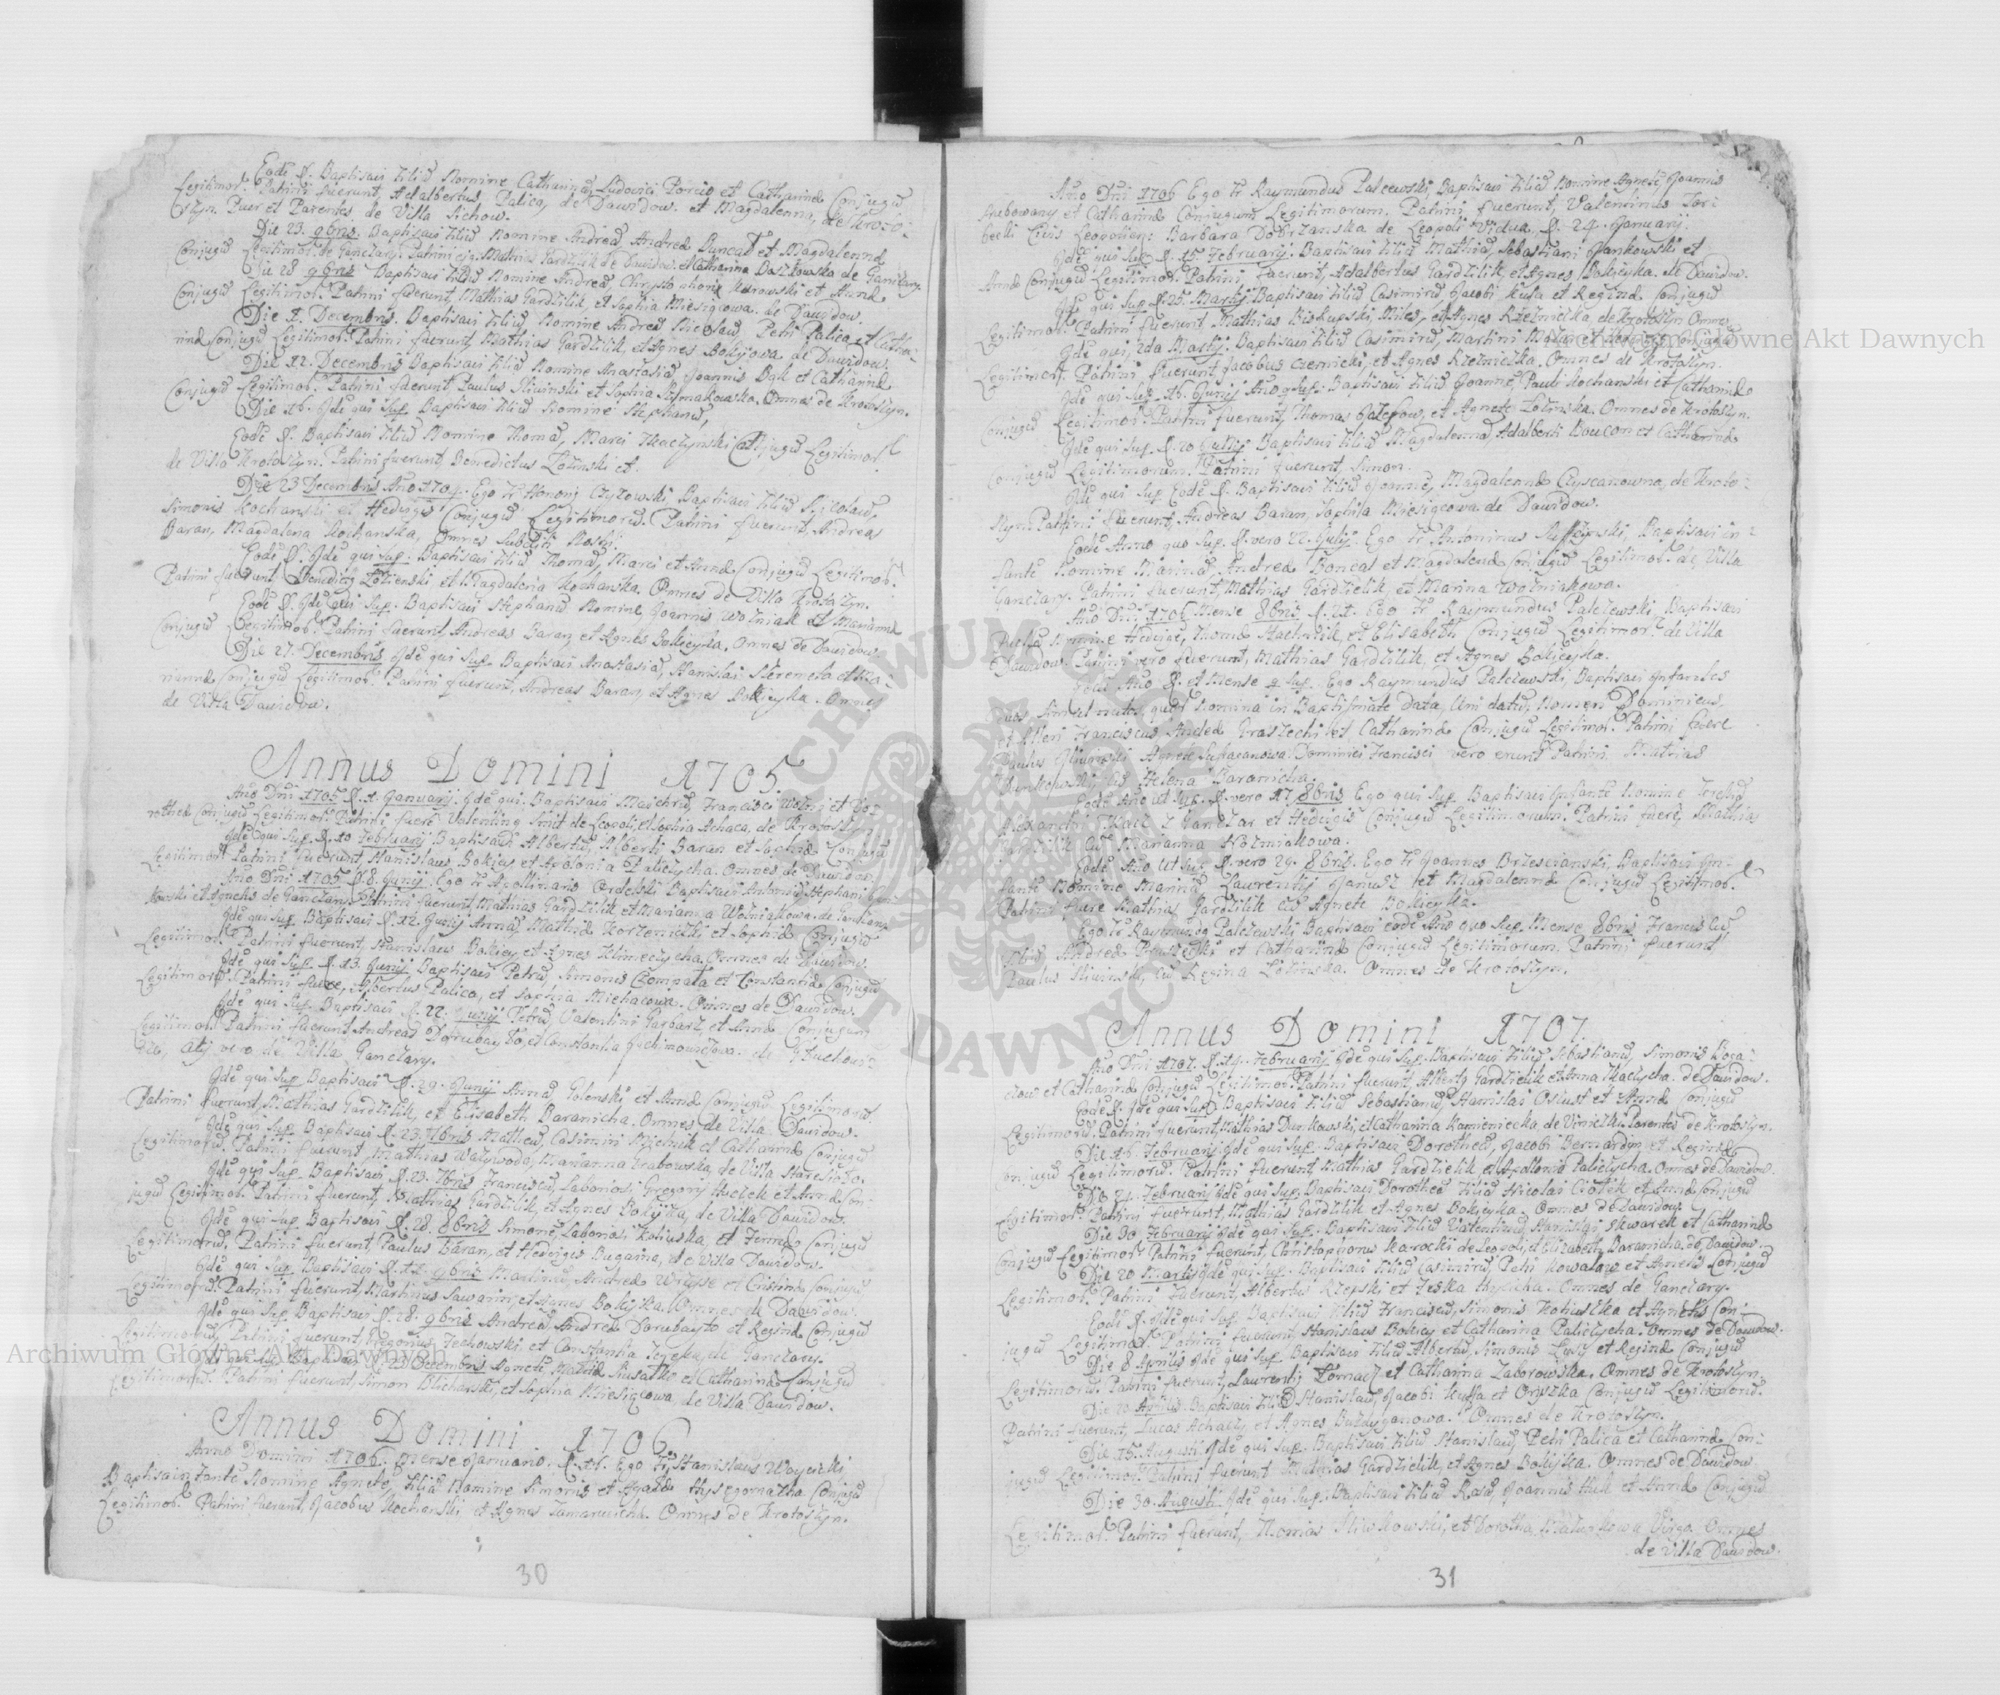 Eodē d. Baptisavi Filiā Nomine Catharinā, Ludovici Porcio et Catharinæ Conjugū
Legitimor. Patrini fuerunt Adalbertus Palica, de Dawidow. et Magdalenna, de Kroto:
szyn. Puer et Parentes de Villa Sichow.
Die 23. 9bris Baptisavi Filiū Nomine Andreā, Andreæ Duncal et Magdalennæ
Conjugū Legitimor. de Ganczary. Patrini Mathias Gardzilik de Dawidow. et Katharina Daszkowska de Ganczary.
Die 28 9bris Baptisavi Filiū Nomine Andreā Chrystophori Karowski et Annæ
Conjugū Legitimor. Patrini fuerunt Mathias Gardzilik et Sophia Miesiącowa. de Dawidow.
Die 2. Decembris. Baptisavi Filiū Nomine Andreā Petri Palica et Catha-
rinæ Conjugū Legitimor. Patrini fuerunt Mathias Gardzilik, et Agnes Bokijowa de Dawidow.
Die 12. Decembris Baptisavi Filiā Nomine Anastasiā Joannis Bąk et Catharinæ
Conjugū Legitimor. Patrini fuerunt Paulus Sliwinski et Sophia Szimakowska. Omnes de Krotoszyn.
Die 16. Idē qui Sup. Baptisavi Filiū Nomine Stephanū,
Eodē d. Baptisavi Filiū Nomine Thomā, Marci Tkaczynski Conjugū Legitimor.
de Villa Krotoszyn. Patrini fuerunt, Benedictus Łozinski et.
Die 23 Decembris Ano 1704. Ego Fr Honorij Czyzowski Baptisavi Filiū Nicolaū,
Simonis Kochanski et Hedvigis Conjugū Legitimorū. Patrini fuerunt, Andreas
Baran, Magdalena Kochanska, Omnes Subditi Nostri.
Eodē d. Idē qui Sup. Baptisavi Filiū Thomā, Marci et Annæ Conjugū Legitimor.
Patrini fuerunt Benedict Łozienski et Magdalena Kochanska. Omnes de Villa Krotoszyn.
Eodē d. Idē qui Sup. Baptisavi Stephanū Nomine, Joannis Wozniak et Mariannæ
Conjugū Legitimor. Patrini fuerunt, Andreas Baran, et Agnes Bokieyka. Omnes de Dawidow.
Die 27. Decembris Idē qui Sup. Baptisavi Anastasiā, Stanislai Szeremeta et Ma-
riannæ Conjugū Legitimor. Patrini fuerunt, Andreas Baran, et Agnes Bokieyka. Omnes
de Villa Dawidow.
Annus Domini 1705
Ano Dni 1705 d. 1. Januarij. Idē qui Baptisavi Francisci et Do-
rotheæ Conjugū Legitimor. Patrini fuere Valenting de Leopoli, et Sophia Achaca, de Krotoszyn.
Idē qui Sup. d. 10 Februarij Baptisavi Albertū, Alberti Baran et Sophiæ Conjugū
Legitimor. Patrini fuerunt, Stanislaus Bokiey et Apolonia Paliczycha. Omnes de Dawidow.
Ano Dni 1705 d. 8. Junij. Ego Fr Apollinaris Ordelski Baptisavi Antoniū, Stephani
kowski et Agnetis de Ganczary. Patrini fuerunt Mathias Gardzilik et Marianna Wozniakowa. de Ganczary.
Idē qui Sup. Baptisavi d. 12. Junij Annā, Mathiæ Korzeniecki et Sophiæ Conjugū
Legitimor. Patrini fuerunt, Stanislaus Bokiey et Agnes Klimeczycha. Omnes de Dawidow.
Idē qui Sup. d. 13. Junij Baptisavi Petrū, Simonis Czompata et Constantiæ Conjugū
Legitimorū. Patrini fuere, Albertus Palica, et Sophia Michacowa. Omnes de Dawidow.
Idē qui Sup. Baptisavi d. 22. Junij Petrū, Valentini Garbarz et Annæ Conjugum
Legitimor. Patrini fuerunt Andreas Dorubayło, et Constantia Jachimowiczowa. de Hłuchowi-
cze, Alij vero de Villa Ganczary.
Idē qui Sup. Baptisavi d. 29. Junij Annā, Golenski et Annæ Conjugū Legitimorū.
Patrini fuerunt, Mathias Gardzilik, et Elisabeth Baranicha. Omnes de Villa Dawidow.
Idē qui Sup. Baptisavi d. 23. 7bris Matheū, Casimiri Mielnik et Catharinæ Conjugū
Legitimorū. Patrini fuerunt, Mathias Wazywoda, Marianna Grabowska, de Villa Staresioło.
Idē qui Sup. Baptisavi d. 23. 7bris Franciscū, Laboriosi Gregorij Huczek et Annæ Con-
jugū Legitimor. Patrini fuerunt, Mathias Gardzilik, et Agnes Bokijka, de Villa Dawidow.
Idē qui Sup. Baptisavi d. 28. 8bris Simonē, Laboriosi Koliuska, et Conjugū
Legitimorū. Patrini fuerunt, Paulus Baran, et Hedviges Bugaina, de Villa Dawidow.
Idē qui Sup. Baptisavi d. 12. 9bris Martinū, Andreæ et Cristinæ Conjugū
Legitimorū. Patrini fuerunt, Martinus Sawarin, et Agnes Bokijka. Omnes de Dawidow.
Idē qui Sup. Baptisavi d. 28. 9bris Andreā Andreæ Dorubayło et Reginæ Conjugū
Legitimorū, Patrini fuerunt, Gregorius Zechowski et Constantia de Ganczary.
Idē qui Sup. Baptisavi d. Decembris Agnetē Mathiæ et Catharinæ Conjugū
Legitimorū. Patrini fuerunt, Simon Blicharski, et Sophia Miesiącowa, de Villa Dawidow.
Annus Domini 1706
Anno Domini 1706. Mense Januario. d. 16. Ego Fr Stanislaus Woycicki
Baptisavi Infantē Nomine Agnetē, Filiā Nomine Simonis et Agathæ Conjugū
Legitimor. Patrini fuerunt, Jacobus Kochanski et Agnes Tamarwicha. Omnes de Krotoszyn.
30
Ano Dni 1706 Ego Fr Raymundus Palczewski Baptisavi Filiā Nomine Agnetē, Joannis
Grabowany et Catharinæ Conjugum Legitimorum. Patrini fuerunt, Valentinus Tori
becki Civis Leopolien: Barbara Dobrzanska de Leopoli Vidua d. 24. Januarij.
Idē qui Sup. d. 15. Februarij. Baptisavi Filiū Mathiā, Sebastiani Jankowski et
Annæ Conjugū Legitimor. Patrini fuerunt, Adalbertus Gardzilik, et Agnes Bokieyka. de Dawidow.
Idē qui Sup. d. 25. Martij Baptisavi Filiū Casimirū Jacobi Kusa et Reginæ Conjugū
Legitimor. Patrini fuerunt Mathias Biskupski, Miles, et Agnes Rzeźnicka, de Krotoszyn Omnes
Idē qui, 2da Martij. Baptisavi Filiū Casimirū, Martini et Conjugū
Legitimor. Patrini fuerunt Jacobus Czernicki, et Agnes Rzeznicka. Omnes de Krotoszyn.
Idē qui Sup. 16. Junij Ano Sup. Baptisavi Filiū Joannē, Pauli Kochanski et Catharinæ
Conjugū Legitimor. Patrini fuerunt, Thomas et Agnete Łozinska. Omnes de Krotoszyn.
Idē qui Sup. d. 20 Julij Baptisavi Filiā Magdalennā, Adalberti Boucon et Catharinæ
Conjugū Legitimorum. Patrini fuerunt, Simon.
Idē qui Sup. Eodē d. Baptisavi Filiū Joannē, Magdalennæ Chrzcanowna, de Kroto:
szyn. Patrini fuerunt, Andreas Baran, Sophia Miesiącowa. de Dawidow.
Eodē Anno quo Sup. d. vero 22. Julij. Ego Fr Antoninus Baptisavi in-
fantē Nomine Marinā, Andreæ Boncal et Magdalenæ Conjugū Legitimor. de Villa
Ganczary. Patrini fuerunt, Mathias Gardzielik, et Marina Wozniakowa.
Ano Dni. 1706. Mense 8bris d. 21. Ego Fr Raymundus Palczewski, Baptisavi
Puellā Nomine Hedvige, Thomæ Stachniik, et Elisabeth Conjugū Legitimor. de Villa
Dawidow. Patrini vero fuerunt, Mathias Gardzilik, et Agnes Bokieyka.
Eodē Ano d. et Mense q Sup. Ego Raymundus Palczewski, Baptisavi Infantes
duos Simul natos, quorū Nomina in Baptismate data, Uni datū Nomen Dominicus,
et Alteri Franciscus Andreæ Grastechi et Catharinæ Conjugū Legitimor. Patrini fuere
Paulus Gliwinski Agnete Łukaczanowa. Dominici Francisci vero erunt Patrini Mathias
Dunkowski, Helena Baranicha.
Eodē Ano ut Sup. d. vero 17. 8bris Ego qui Sup. Baptisavi Infantē Nomine
Alexandri Tkacz z Ganczar et Hedvigis Conjugū Legitimorum. Patrini fuere, Mathias
Gardzilik Marianna Wozniakowa.
Eodē Ano Ut Sup. d. vero 29. 8bris. Ego Fr Joannes Brzescianski, Baptisavi In-
fantē Nomine Marinā, Laurentij Janusz et Magdalennæ Conjugū Legitimor.
Patrini fuere Mathias Gardzilik Agnete Bokieyka.
Ego Fr Raymund Palczewski Baptisavi eodē Ano quo Sup. Mense 8bris Franciscū
Filiū Andreæ et Catharinæ Conjugū Legitimorum. Patrini fuerunt
Paulus Sliwinski, Regina Łozinska. Omnes de Krotoszyn.
Annus Domini 1707.
Ano Dni 1707. d. 14. Februarij Idē qui Sup. Baptisavi Filiū Sebastianū, Simonis Roga-
czow et Catharinæ Conjugū Legitimor. Patrini fuerunt, Albertg Gardzielik et Anna Tkaczycha. de Dawidow.
Eodē d. Idē qui Sup. Baptisavi Filiū Sebastianū, Stanislai Oslust et Annæ Conjugū
Legitimorū, Patrini fuerunt, Mathias Dunkowski, et Catharina Kamieniecka, de Winniczki. Parentes de Krotoszyn.
Die 16. Februarij Idē qui Sup. Baptisavi Dorotheā, Jacobi Bernardyn et Reginæ
Conjugū Legitimorū. Patrini fuerunt Mathias Gardzielik et Apolonia Paliczycha. Omnes de Dawidow.
Die 21. Februarij Idē qui Sup. Baptisavi Dorotheā Filiā Nicolai Ciołek et Annæ Conjugū
Legitimor. Patrini fuerunt, Mathias Gardzilik et Agnes Bokieyka. Omnes de Dawidow.
Die 30 Februarij Idē qui Sup. Baptisavi Filiū Valentinū, Stanislai Skwarek et Catharinæ
Conjugū Legitimor. Patrini fuerunt, Christophorus Karocki de Leopoli, et Elizabeth Baranicha. de Dawidow.
Die 20 Martij Idē qui Sup. Baptisavi Filiū Casimirū, Petri Kowalow et Agnetis Conjugū
Legitimor. Patrini fuerunt, Albertus Rzepski et Teska Omnes de Ganczary.
Eodē d. Idē qui Sup. Baptisavi Filiū Franciscū, Simonis Kohuszka et Agnetis Con-
jugū Legitimor. Patrini fuerunt, Stanislaus Bokiey et Catharina Paliczycha. Omnes de Dawidow.
Die 8 Aprilis Idē qui Sup. Baptisavi Filiū Albertū, Simonis et Reginæ Conjugū
Legitimorū. Patrini fuerunt, Laurentij Tornacz et Catharina Zaborowska. Omnes de Krotoszyn.
Die 20 Aprilis Baptisavi Filiū Stanislaū, Jacobi Kussa et Oryszka Conjugū Legitimorū.
Patrini fuerunt, Lucas Achaczy et Agnes Buzdyganowa. Omnes de Krotoszyn.
Die 15. Augusti. Idē qui Sup. Baptisavi Filiū Stanislaū, Petri Palica et Catharinæ Con-
jugū Legitimor. Patrini fuerunt Mathias Gardzielik, et Agnes Bokijka. Omnes de Dawidow.
Die 30. Augusti. Idē qui Sup. Baptisavi Filiā Rosā, Joannis Huk et Annæ Conjugū
Legitimor. Patrini fuerunt, Thomas Sliwkowski, et Dorothea Virgo. Omnes
de Villa Dawidow.
31
Archiwum Główne Akt Dawnych
Archiwum Główne Akt Dawnych
ARCHIWUM GŁÓWNE AKT DAWNYCH